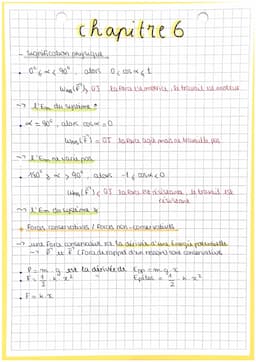 chapitre 6
- Signification physique
• 0° ≤ α < 90°, alors 0 < cos α ≤ 1
W_AB(F) > 0J la force est motrice, le travail est moteur
~> l'Em du système ↗
• α = 90°, alors cos α = 0
W_AB(F) = 0J la force agit mais ne travaille pas
~> l'Em ne varie pas
• 180° ≥ α > 90°, alors -1 ≤ cos α < 0
W_AB(F) < 0J la force est résistante, le travail est
résistant
~> l'Em du système ↘
• Forces conservatives / Forces non-conservatives
~> une force conservative est la dérivée d'une Energie potentielle
~> P et F (Force de rappel d'un ressort) sont conservatives
• P = m . g est la dérivée de Epp = m g x
• F = 1/2 . k x² " Epélas = 1/2 . k . x²
• F = k x